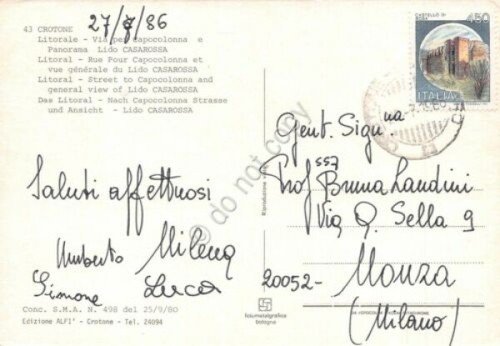 27/7/86
43 CROTONE
Litorale - Via per Capocolonna e
Panorama Lido CASAROSSA
Litoral - Rue Pour Capocolonna et
vue générale du Lido CASAROSSA
Littoral - Street to Capocolonna and
general view of Lido CASAROSSA
Das Litoral - Nach Capocolonna Strasse
und Ansicht - Lido CASAROSSA
Saluti affettuosi
Umberto Milena
Simone Luca
Conc. S.M.A. N. 498 del 25/9/80
Edizione ALFI' - Crotone - Tel. 24094
fotometalgrafica
bologna
CASTELLO DI
450
ITALIA
Gent. Sigu.na
Prof.ssa Bruna Landini
Via Q. Sella 9
20052 - Monza
(Milano)
do not copy